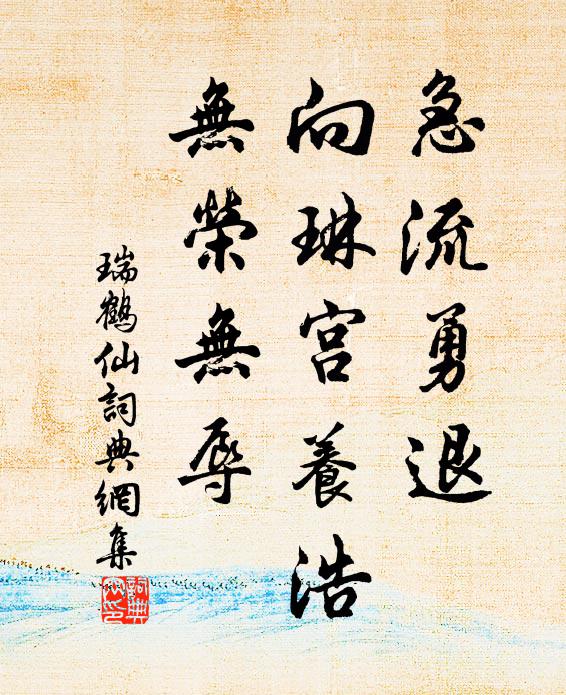 急流勇退
向琳宫養浩
無榮無辱
瑞鶴仙詞典網集